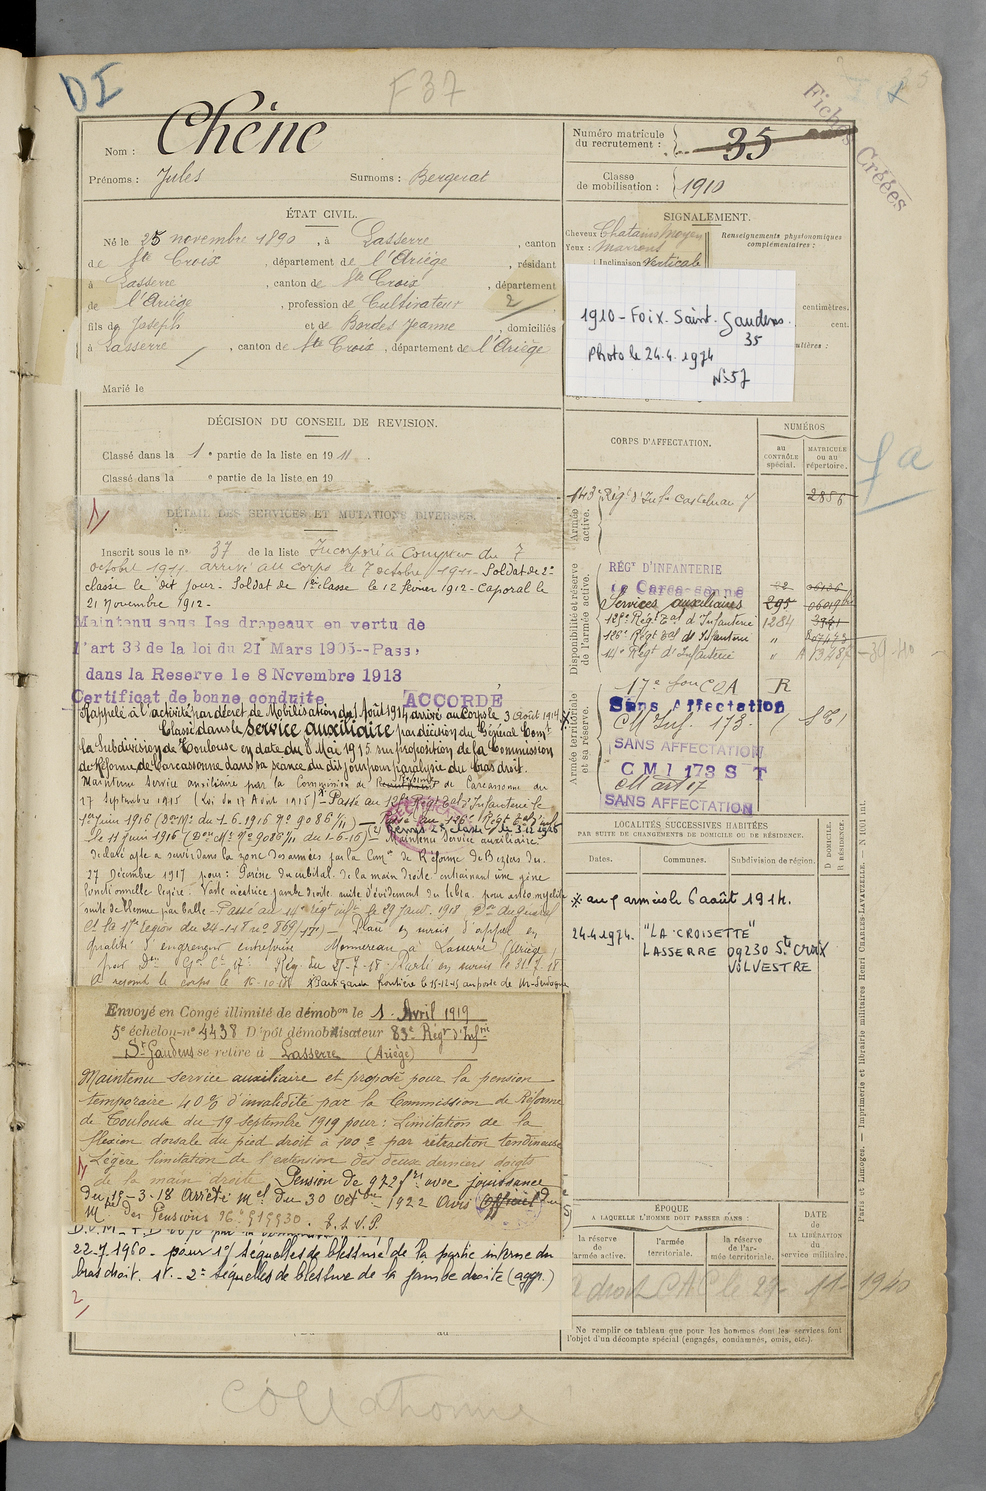 DI
F37
Fiches Créées
Nom : Chêne
Prénoms : Jules Surnoms : Bergerat
Numéro matricule du recrutement : 35
Classe de mobilisation : 1910
ÉTAT CIVIL.
Né le 25 novembre 1890, à Lasserre, canton
de Ste Croix, département de l'Ariège, résidant
à Lasserre, canton de Ste Croix, département
de l'Ariège, profession de Cultivateur
fils de Joseph et de Bordes Jeanne, domiciliés
à Lasserre, canton de Ste Croix, département de l'Ariège
2/
Marié le
SIGNALEMENT.
Cheveux Chatains moyen
Yeux : Marrons
Inclinaison verticale
Renseignements physionomiques complémentaires :
centimètres.
cent.
1910 - Foix. Saint. Gaudens.
35
Photo le 24.4.1974
N:57
DÉCISION DU CONSEIL DE REVISION.
Classé dans la 1e partie de la liste en 1911.
Classé dans la e partie de la liste en 19
1/
DÉTAIL DES SERVICES ET MUTATIONS DIVERSES.
Inscrit sous le n° 37 de la liste Incorporé à Compter du 7
octobre 1911. arrivé au Corps le 7 octobre 1911 - Soldat de 2e
classe le dit jour - Soldat de 1ère classe le 12 février 1912 - Caporal le
21 Novembre 1912 -
Maintenu sous les drapeaux en vertu de
l'art 33 de la loi du 21 Mars 1905--Passé
dans la Reserve le 8 Novembre 1913
Certificat de bonne conduite ACCORDÉ
Rappelé à l'activité par décret de Mobilisation du 1 Août 1914 arrivé au Corps le 3 Août 1914
Classé dans le service auxiliaire par décision du Général Comt
la Subdivision de Toulouse en date du 8 Mai 1915 sur proposition de la Commission
de Réforme de Carcassonne dans sa séance du dit jour pour paralysie du bras droit.
Maintenu Service auxiliaire par la Commission de Réforme de Carcassonne du
17 Septembre 1915 (Loi du 17 Août 1915) - Passé au 125e Régt Tal d'Infanterie le
1er Juin 1916 (Don M. du 1-6-1916 N° 9086 1/11) - Passé au 126e Régt Tal d'Inf
le 11 Juin 1916 (Don M. N° 9086 1/11 du 1-6-16) Maintenu Service auxiliaire.
déclaré apte à servir dans la zone des armées par la Comon de Réforme de Beziers du
27 Décembre 1917 pour : Parésie du cubital de la main droite entrainant une gêne
fonctionnelle légère. Vaste cicatrice jambe droite suite d'évidement du tibia pour ostéomyélite
suite de blessure par balle - Passé au 14e Régt Inf. le 29 Janv. 1918
Ct la 17e Région du 24-1-18
Envoyé en Congé illimité de démobon le 1. Avril 1919
5e échelon - n° 4438 Dépôt démobilisateur 83e Régt d'Infrie
St Gaudens se retire à Lasserre (Ariège)
Maintenu service auxiliaire et proposé pour la pension
temporaire 40% d'invalidité par la Commission de Réforme
de Toulouse du 19 Septembre 1919 pour : Limitation de la
flexion dorsale du pied droit à 100° par rétraction tendineuse
Légère limitation de l'extension des deux derniers doigts
de la main droite. Pension de 972f avec jouissance
du 15-3-18 Arrêté Mel du 30 Octbre 1922 Avis Officiel du
Mtre des Pensions
22-7-1960 - pour 1°/ Séquelles de blessure de la partie interne du
bras droit. st. - 2° Séquelles de blessure de la jambe droite (aggr.)
2/
CORPS D'AFFECTATION.
NUMÉROS
au CONTRÔLE spécial.
MATRICULE OU AU répertoire.
Armée active.
143e Régt d'Infie Castelnau 7 2856
fa
Disponibilité et réserve de l'armée active.
RÉGt D'INFANTERIE
de Carcassonne
Services auxiliaires 295
125e Régt Tal d'Infanterie 1284
126e Régt Tal d'Infanterie "
14e Régt d'Infanterie "
Armée territoriale et sa réserve.
17e Son COA R
Sans Affectation
CM Inf. 173
SANS AFFECTATION
C M I 173 S T
SANS AFFECTATION
LOCALITÉS SUCCESSIVES HABITÉES
PAR SUITE DE CHANGEMENTS DE DOMICILE OU DE RÉSIDENCE.
Dates. Communes. Subdivision de région.
D DOMICILE. R RÉSIDENCE.
aux armées le 6 août 1914.
24-4-1974. "LA CROISETTE"
LASSERRE 09230 Ste CROIX
VOLVESTRE
ÉPOQUE
A LAQUELLE L'HOMME DOIT PASSER DANS :
la réserve de l'armée active.
l'armée territoriale.
la réserve de l'armée territoriale.
DATE DE LA LIBÉRATION du service militaire.
droit CAC le 29-11-1940
Ne remplir ce tableau que pour les hommes dont les services font
l'objet d'un décompte spécial (engagés, condamnés, omis, etc.).
Paris et Limoges. — Imprimerie et librairie militaires Henri CHARLES-LAVAUZELLE.